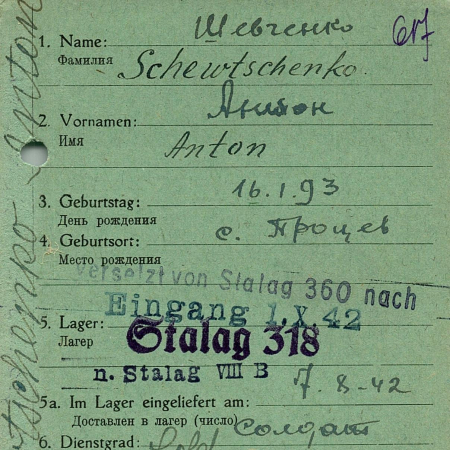 617
Шевченко
1. Name:
Фамилия Schewtschenko.
Антон
2. Vornamen:
Имя
Anton
16.1.93
3. Geburtstag:
День рождения
с. Процев
4. Geburtsort:
Место рождения
versetzt von Stalag 360 nach
Eingang 1.X 42
5. Lager:
Лагер
Stalag 318
n. Stalag VIII B
7.8-42
5a. Im Lager eingeliefert am:
Доставлен в лагер (число)
солдат
6. Dienstgrad: Sold
tschenko Anton